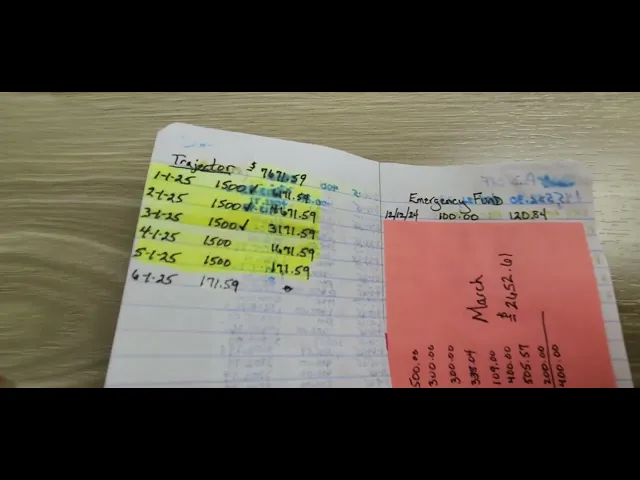 Trajector $7671.59
1-1-25 1500✓ 6171.59
2-1-25 1500✓ 4671.59
3-1-25 1500✓ 3171.59
4-1-25 1500 1671.59
5-1-25 1500 171.59
6-1-25 171.59
Emergency Fund
12/12/24 100.00 120.84
March
$2652.61
500.00
300.00
300.00
109.00
400.00
505.57
200.00
400.00